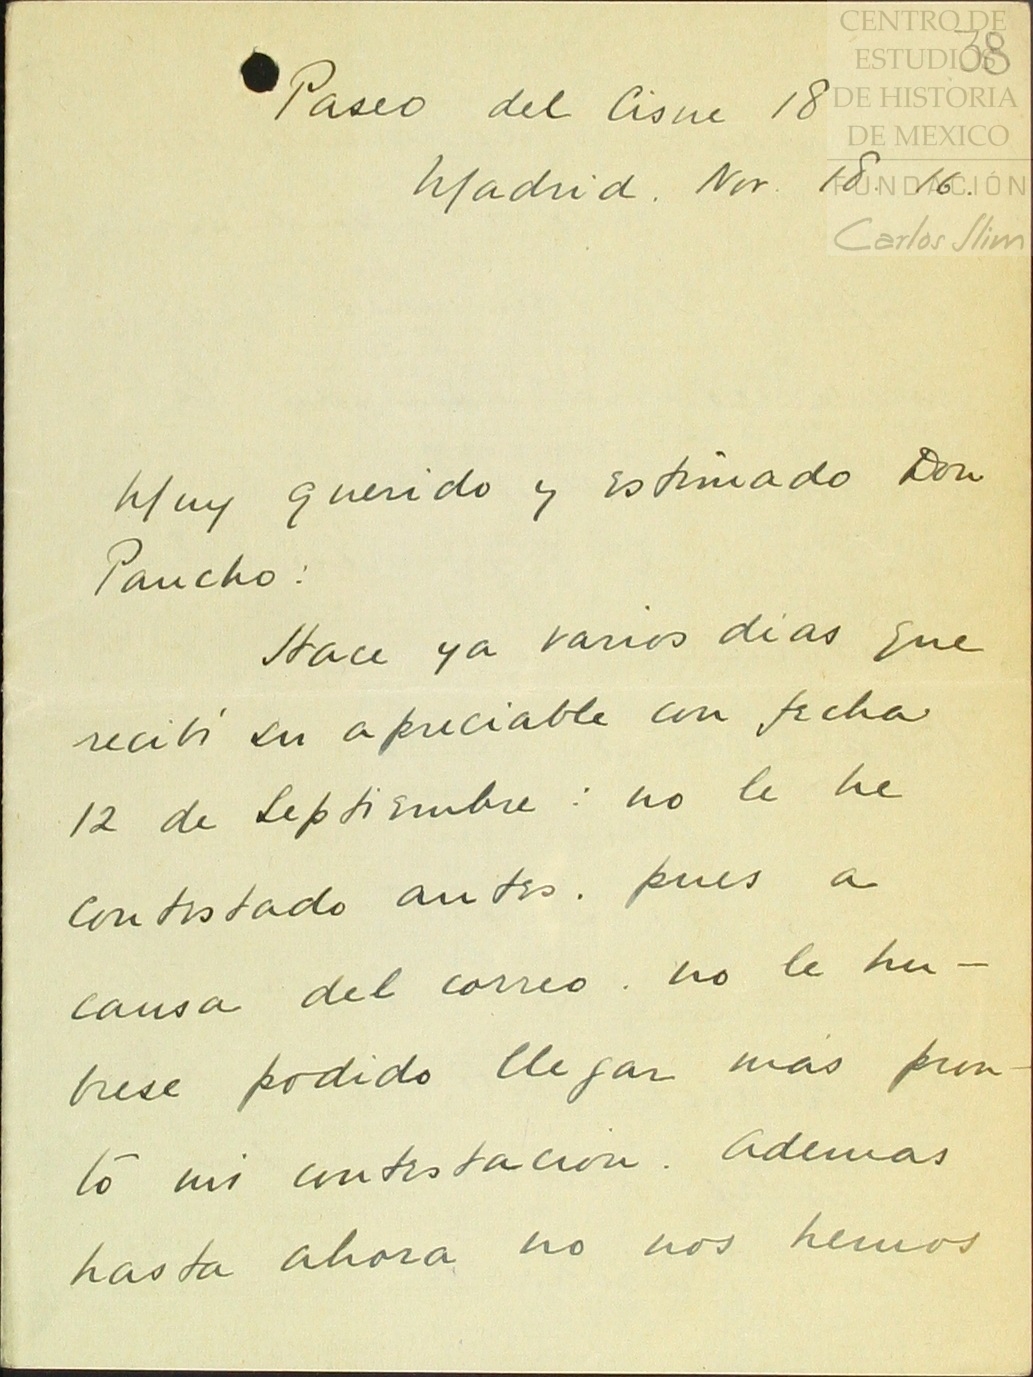 CENTRO DE
ESTUDIOS
DE HISTORIA
DE MEXICO
FUNDACIÓN
Carlos Slim
38
Paseo del Cisne 18
Madrid. Nov. 18. 16.
Muy querido y estimado Don
Pancho:
Hace ya varios dias que
recibí su apreciable con fecha
12 de Septiembre: no le he
contestado antes. pues a
causa del correo. no le hu-
biese podido llegar más pron-
to mi contestación. Ademas
hasta ahora no nos hemos